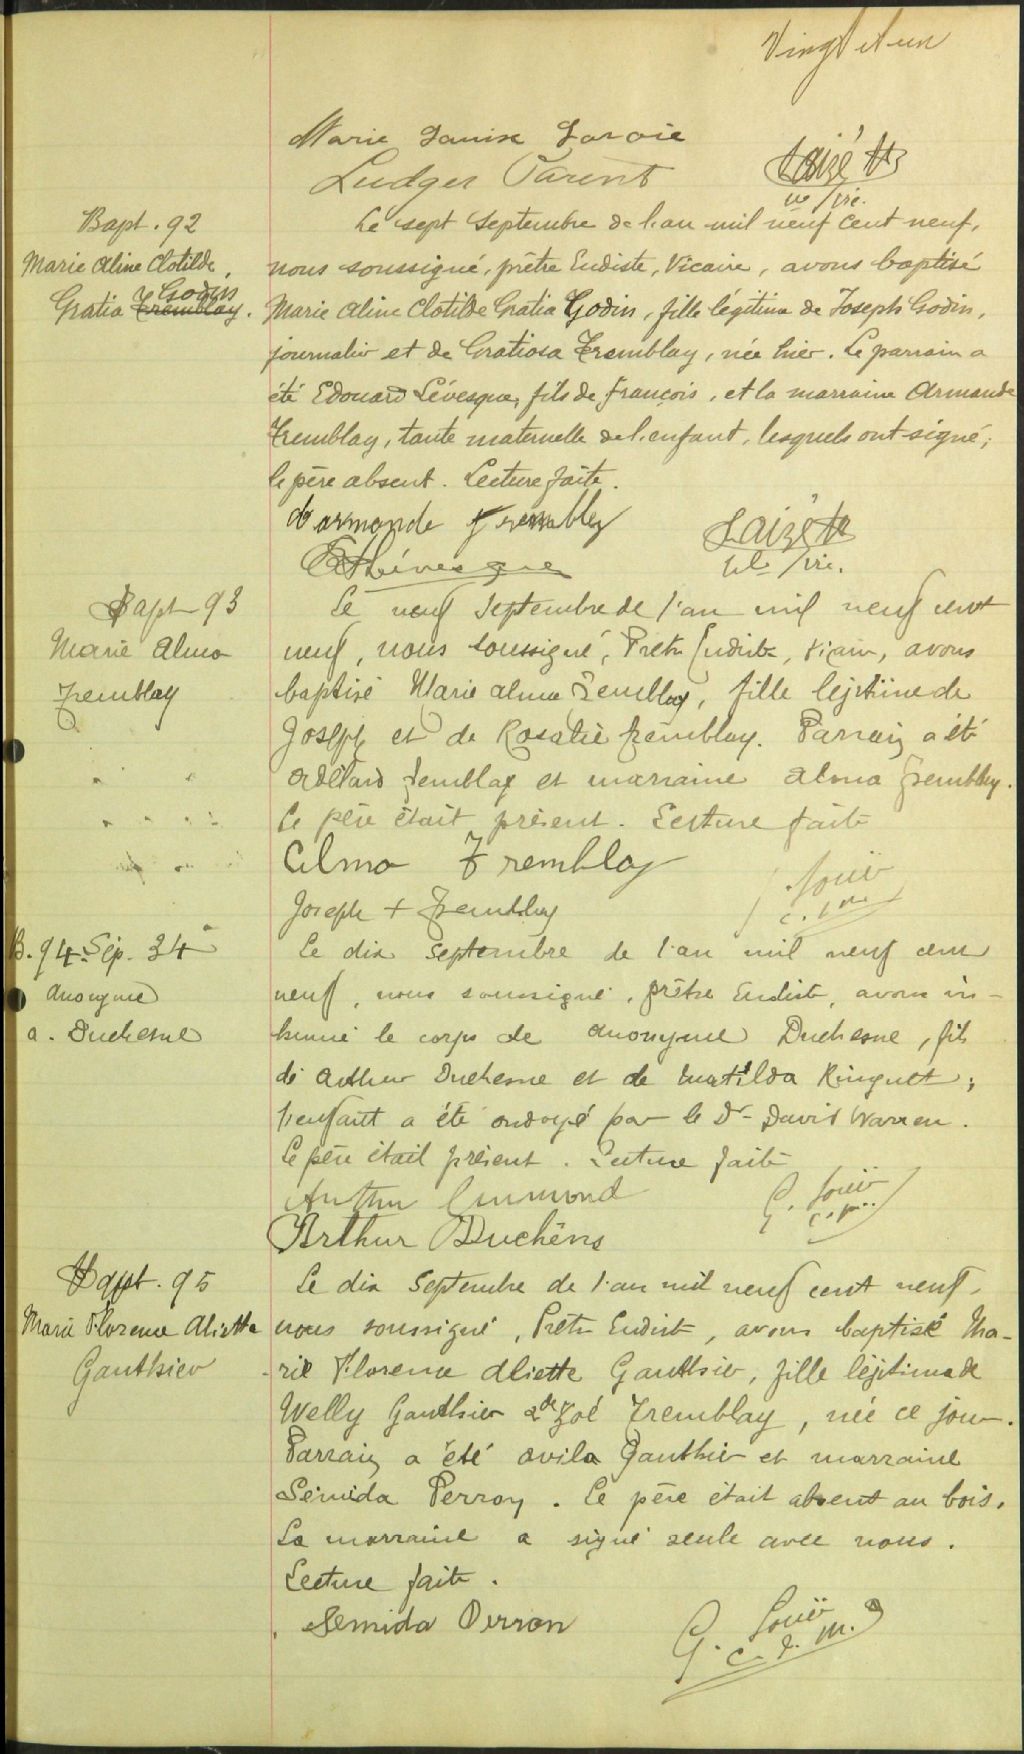 Vingt et un
Marie Louise Lavoie
Ludger Parent
Laizé
Bapt. 92
Marie Aline Clotilde
Gratia Tremblay. Godin
Le sept Septembre de l'an mil neuf cent neuf,
nous soussigné, prêtre Eudiste, Vicaire, avons baptisé
Marie Aline Clotilde Gratia Godin, fille légitime de Joseph Godin,
journalier et de Gratiosa Tremblay, née hier. Le parrain a
été Edouard Lévesque, fils de François, et la marraine Armande
Tremblay, tante maternelle de l'enfant, lesquels ont signé;
le père absent. Lecture faite.
armande Tremblay
Laizé
Lévesque
Bapt 93
Marie Alma
Tremblay
Le neuf Septembre de l'an mil neuf cent
neuf, nous soussigné, Prêtre Eudiste, vicaire, avons
baptisé Marie Alma Tremblay, fille légitime de
Joseph et de Rosalie Tremblay. Parrain a été
Adélard Tremblay et marraine Alma Tremblay.
Le père était présent. Lecture faite
Alma Tremblay
Joseph + Tremblay
B. 94. Sép. 34
Anonyme
a. Duchesne
Le dix Septembre de l'an mil neuf cent
neuf, nous soussigné, prêtre Eudiste, avons in-
humé le corps de anonyme Duchesne, fils
de Arthur Duchesne et de Matilda Ringuet;
l'enfant a été ondoyé par le Dr David Warren.
Le père était présent. Lecture faite
Arthur Duchêns
Bapt. 95
Marie Florence Aliette
Gauthier
Le dix Septembre de l'an mil neuf cent neuf,
nous soussigné, Prêtre Eudiste, avons baptisé Ma-
rie Florence Aliette Gauthier, fille légitime de
Welly Gauthier & de Zoé Tremblay, née ce jour.
Parrain a été Avila Gauthier et marraine
Sémida Perron. Le père était absent au bois.
La marraine a signé seule avec nous.
Lecture faite.
Semida Perron